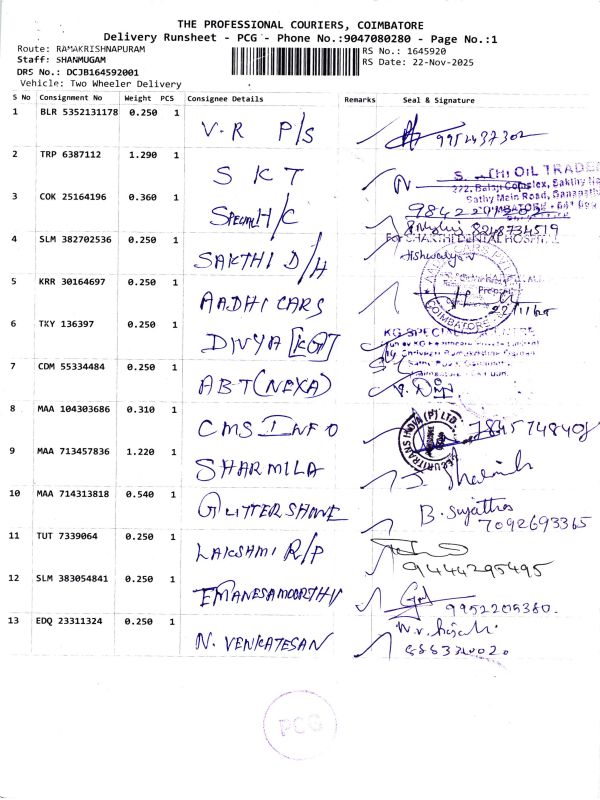 THE PROFESSIONAL COURIERS, COIMBATORE
Delivery Runsheet - PCG - Phone No.:9047080280 - Page No.:1
Route: RAMAKRISHNAPURAM
RS No.: 1645920
Staff: SHANMUGAM
RS Date: 22-Nov-2025
DRS No.: DCJB164592001
Vehicle: Two Wheeler Delivery
S No Consignment No Weight PCS Consignee Details Remarks Seal & Signature
1 BLR 5352131178 0.250 1 V.R P/S 9952437302
2 TRP 6387112 1.290 1 SKT
OIL TRADE
Sathy Main Road,
3 COK 25164196 0.360 1 Special H/C 8248734519
4 SLM 382702536 0.250 1 SAKTHI D/H
For SHAKTHI DENTAL HOSPITAL
5 KRR 30164697 0.250 1 AADHI CARS
COIMBATORE
6 TKY 136397 0.250 1 DIVYA [KG]
KG SPECI
7 CDM 55334484 0.250 1 ABT (NEXA)
8 MAA 104303686 0.310 1 CMS INFO
SECURITRANS INDIA (P) LTD.
9 MAA 713457836 1.220 1 SHARMILA
10 MAA 714313818 0.540 1 GLITTERSHINE B. Sujatha
7092693365
11 TUT 7339064 0.250 1 LAKSHMI R/P
9444295495
12 SLM 383054841 0.250 1
9952205380.
13 EDQ 23311324 0.250 1 N. VENKATESAN
PCG